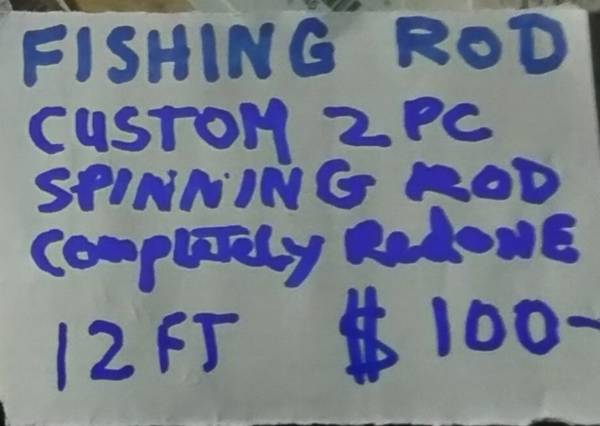 FISHING ROD
CUSTOM 2 PC
SPINNING ROD
COmpLeTeLy RedoNE
12 FT $ 100-